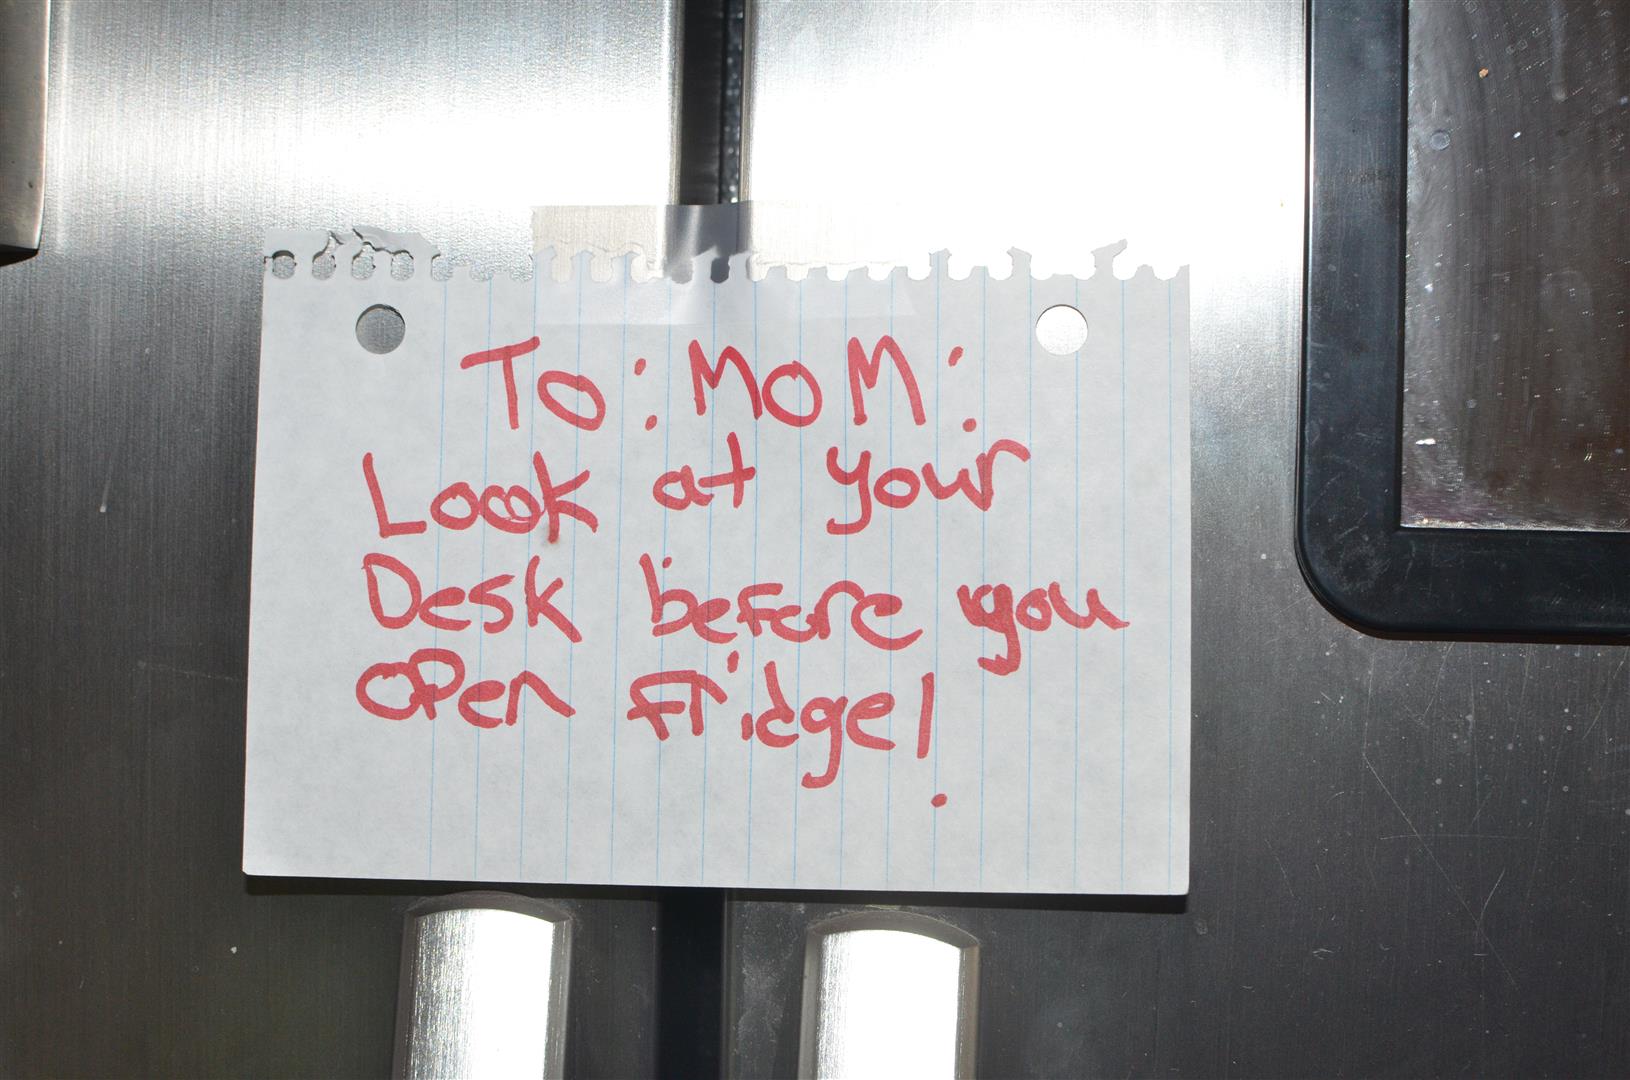 To: MOM:
Look at your
Desk before you
OPen fridge!